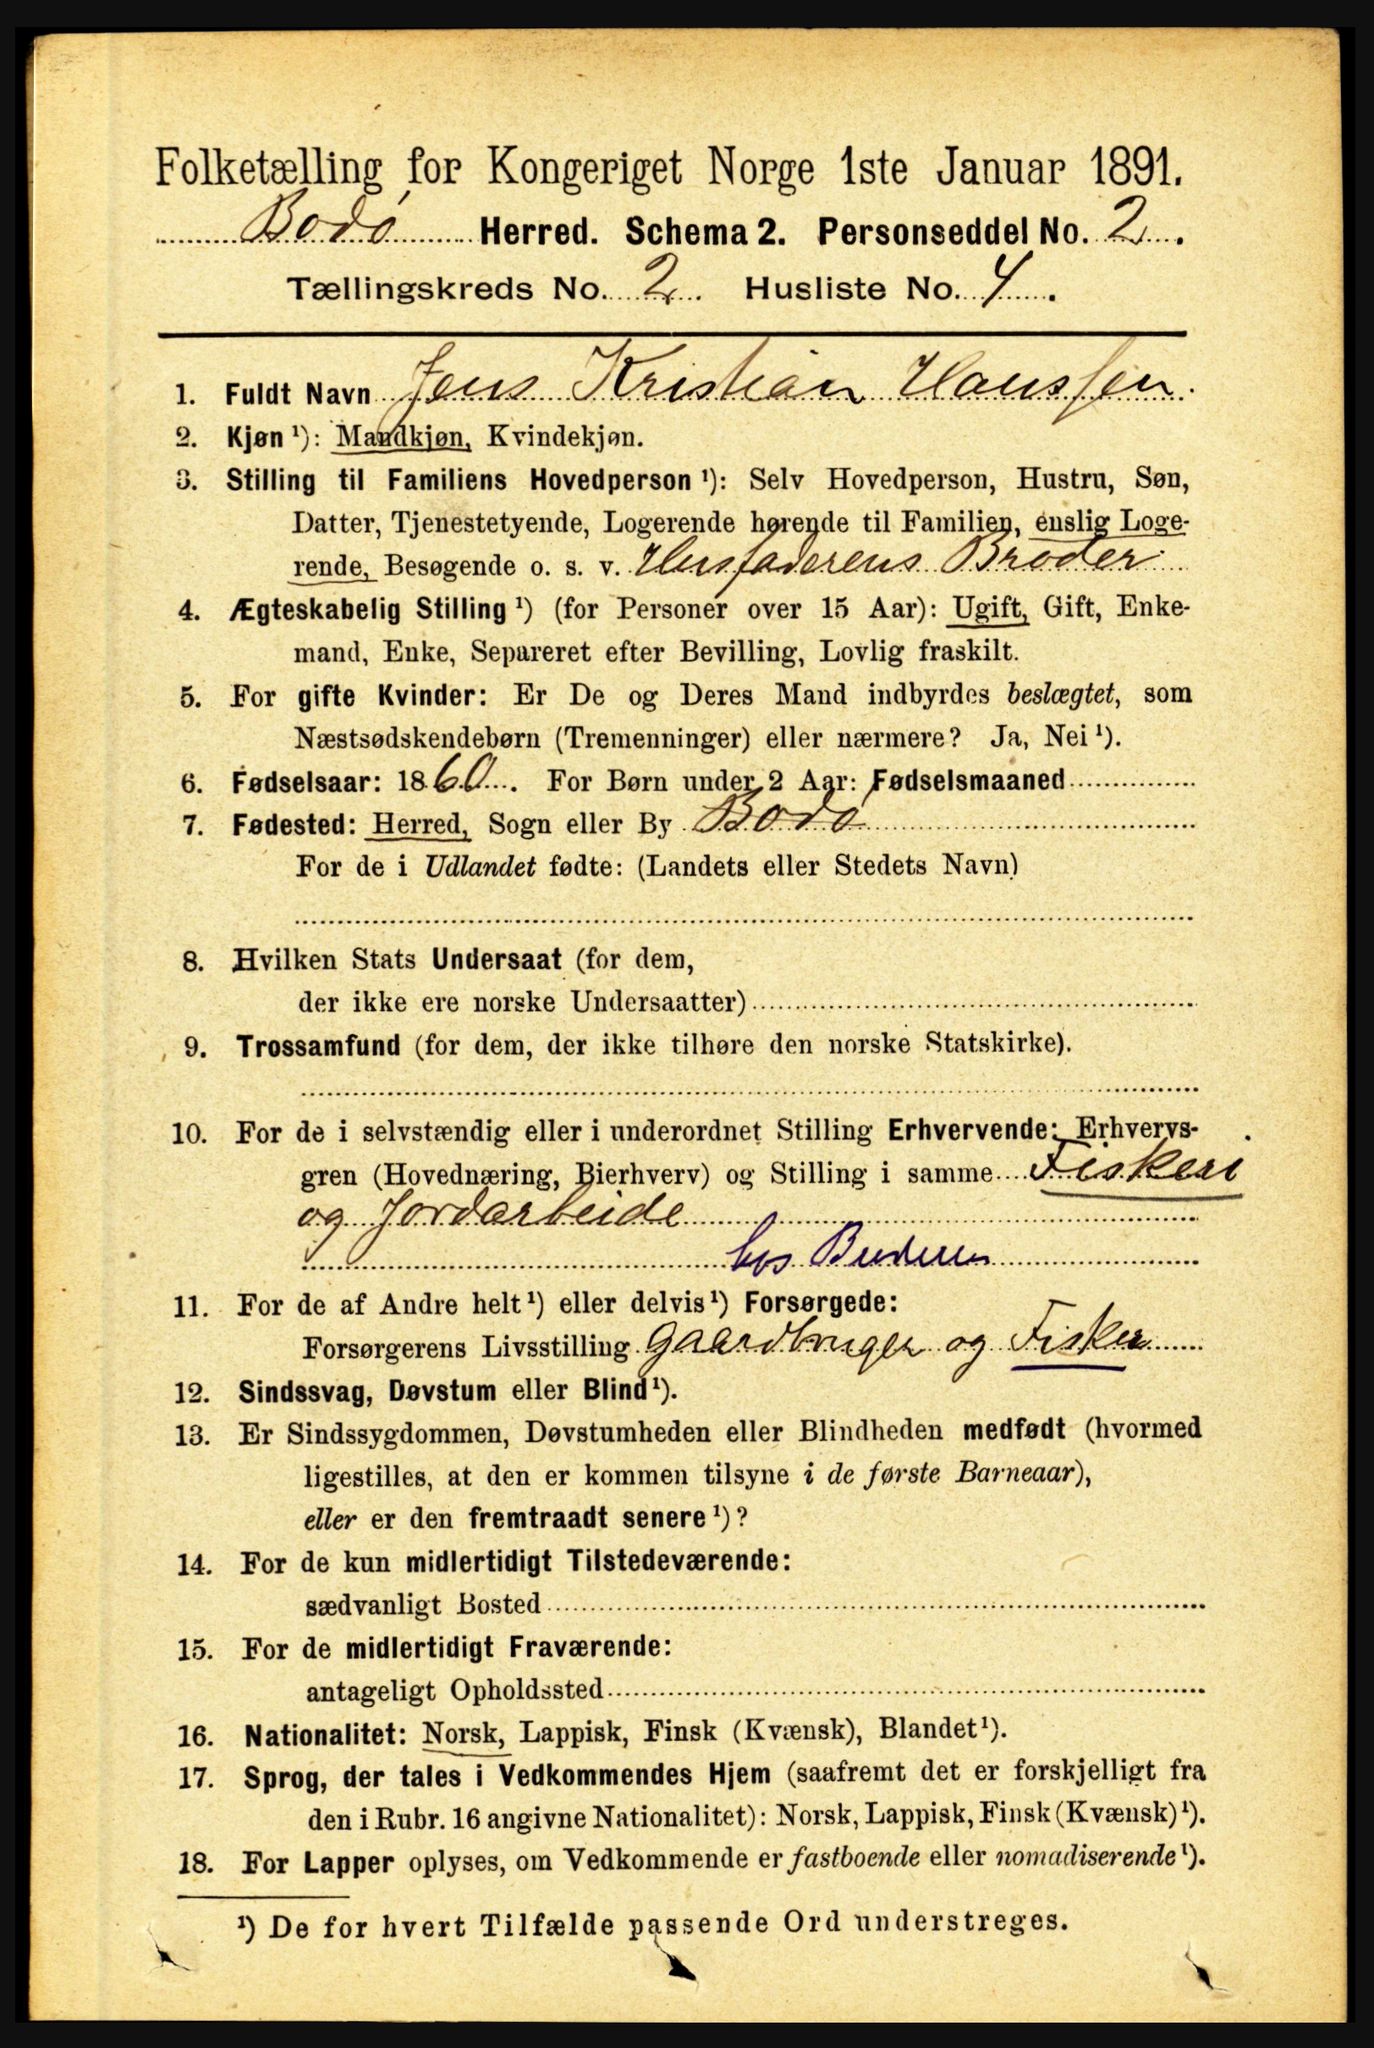 Folketælling for Kongeriget Norge 1ste Januar 1891.
Bodø Herred. Schema 2. Personseddel No. 2.
Tællingskreds No. 2. Husliste No. 4.
1. Fuldt Navn Jens Kristian Hanssen.
2. Kjøn ¹): Mandkjøn, Kvindekjøn.
3. Stilling til Familiens Hovedperson ¹): Selv Hovedperson, Hustru, Søn,
Datter, Tjenestetyende, Logerende hørende til Familien, enslig Loge-
rende, Besøgende o. s. v. Husfaderens Broder
4. Ægteskabelig Stilling ¹) (for Personer over 15 Aar): Ugift, Gift, Enke-
mand, Enke, Separeret efter Bevilling, Lovlig fraskilt.
5. For gifte Kvinder: Er De og Deres Mand indbyrdes beslægtet, som
Næstsødskendebørn (Tremenninger) eller nærmere? Ja, Nei ¹).
6. Fødselsaar: 1860. For Børn under 2 Aar: Fødselsmaaned
7. Fødested: Herred, Sogn eller By Bodø
For de i Udlandet fødte: (Landets eller Stedets Navn)
8. Hvilken Stats Undersaat (for dem,
der ikke ere norske Undersaatter)
9. Trossamfund (for dem, der ikke tilhøre den norske Statskirke).
10. For de i selvstændig eller i underordnet Stilling Erhvervende: Erhvervs-
gren (Hovednæring, Bierhverv) og Stilling i samme Fiskeri
og Jordarbeide
hos Broderen
11. For de af Andre helt ¹) eller delvis ¹) Forsørgede:
Forsørgerens Livsstilling Gaardbruger og Fisker
12. Sindssvag, Døvstum eller Blind ¹).
13. Er Sindssygdommen, Døvstumheden eller Blindheden medfødt (hvormed
ligestilles, at den er kommen tilsyne i de første Barneaar),
eller er den fremtraadt senere ¹)?
14. For de kun midlertidigt Tilstedeværende:
sædvanligt Bosted
15. For de midlertidigt Fraværende:
antageligt Opholdssted
16. Nationalitet: Norsk, Lappisk, Finsk (Kvænsk), Blandet ¹).
17. Sprog, der tales i Vedkommendes Hjem (saafremt det er forskjelligt fra
den i Rubr. 16 angivne Nationalitet): Norsk, Lappisk, Finsk (Kvænsk) ¹).
18. For Lapper oplyses, om Vedkommende er fastboende eller nomadiserende ¹).
¹) De for hvert Tilfælde passende Ord understreges.